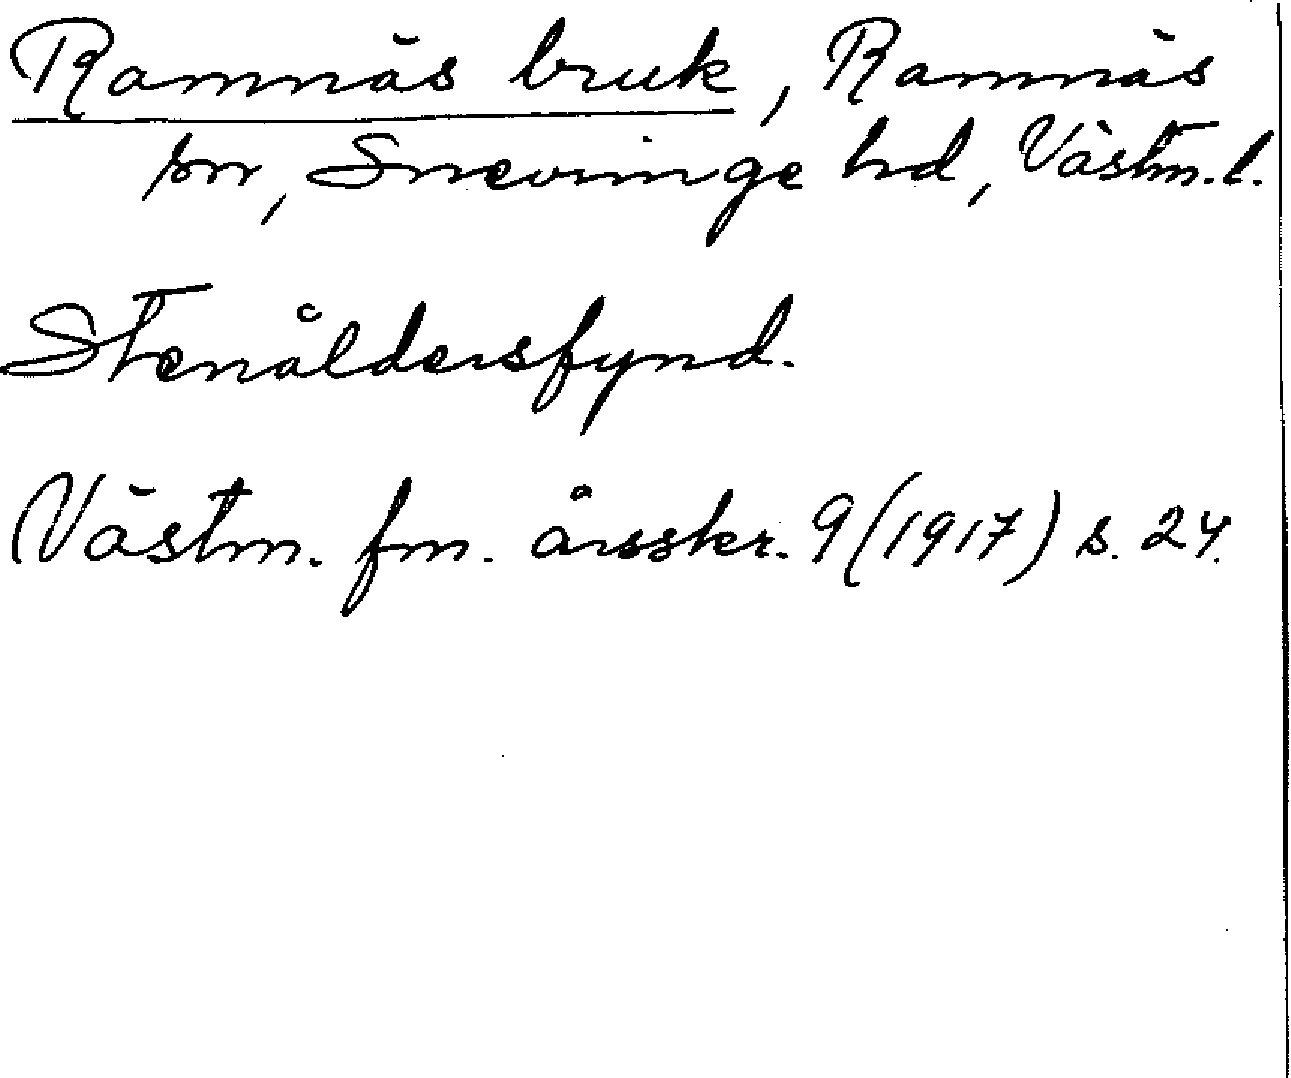 Ramnäs bruk, Ramnäs
sn, Snevringe hd, Västm. l.
Stenåldersfynd.
Västm. fm. årsskr. 9 (1917) s. 24.